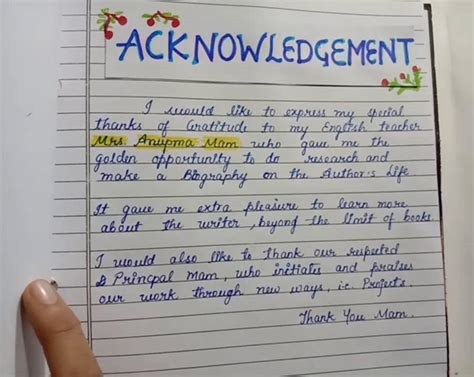 ACKNOWLEDGEMENT
I would like to express my special
thanks of Gratitude to my English teacher
Mrs. Anupma Mam who gave me the
golden opportunity to do research and
make a Biography on the Author's Life
It gave me extra pleasure to learn more
about the writer, beyong the limit of books.
I would also like to thank our respected
& Principal mam, who initiates and praises
our work through new ways, i.e. Projects.
Thank You Mam.